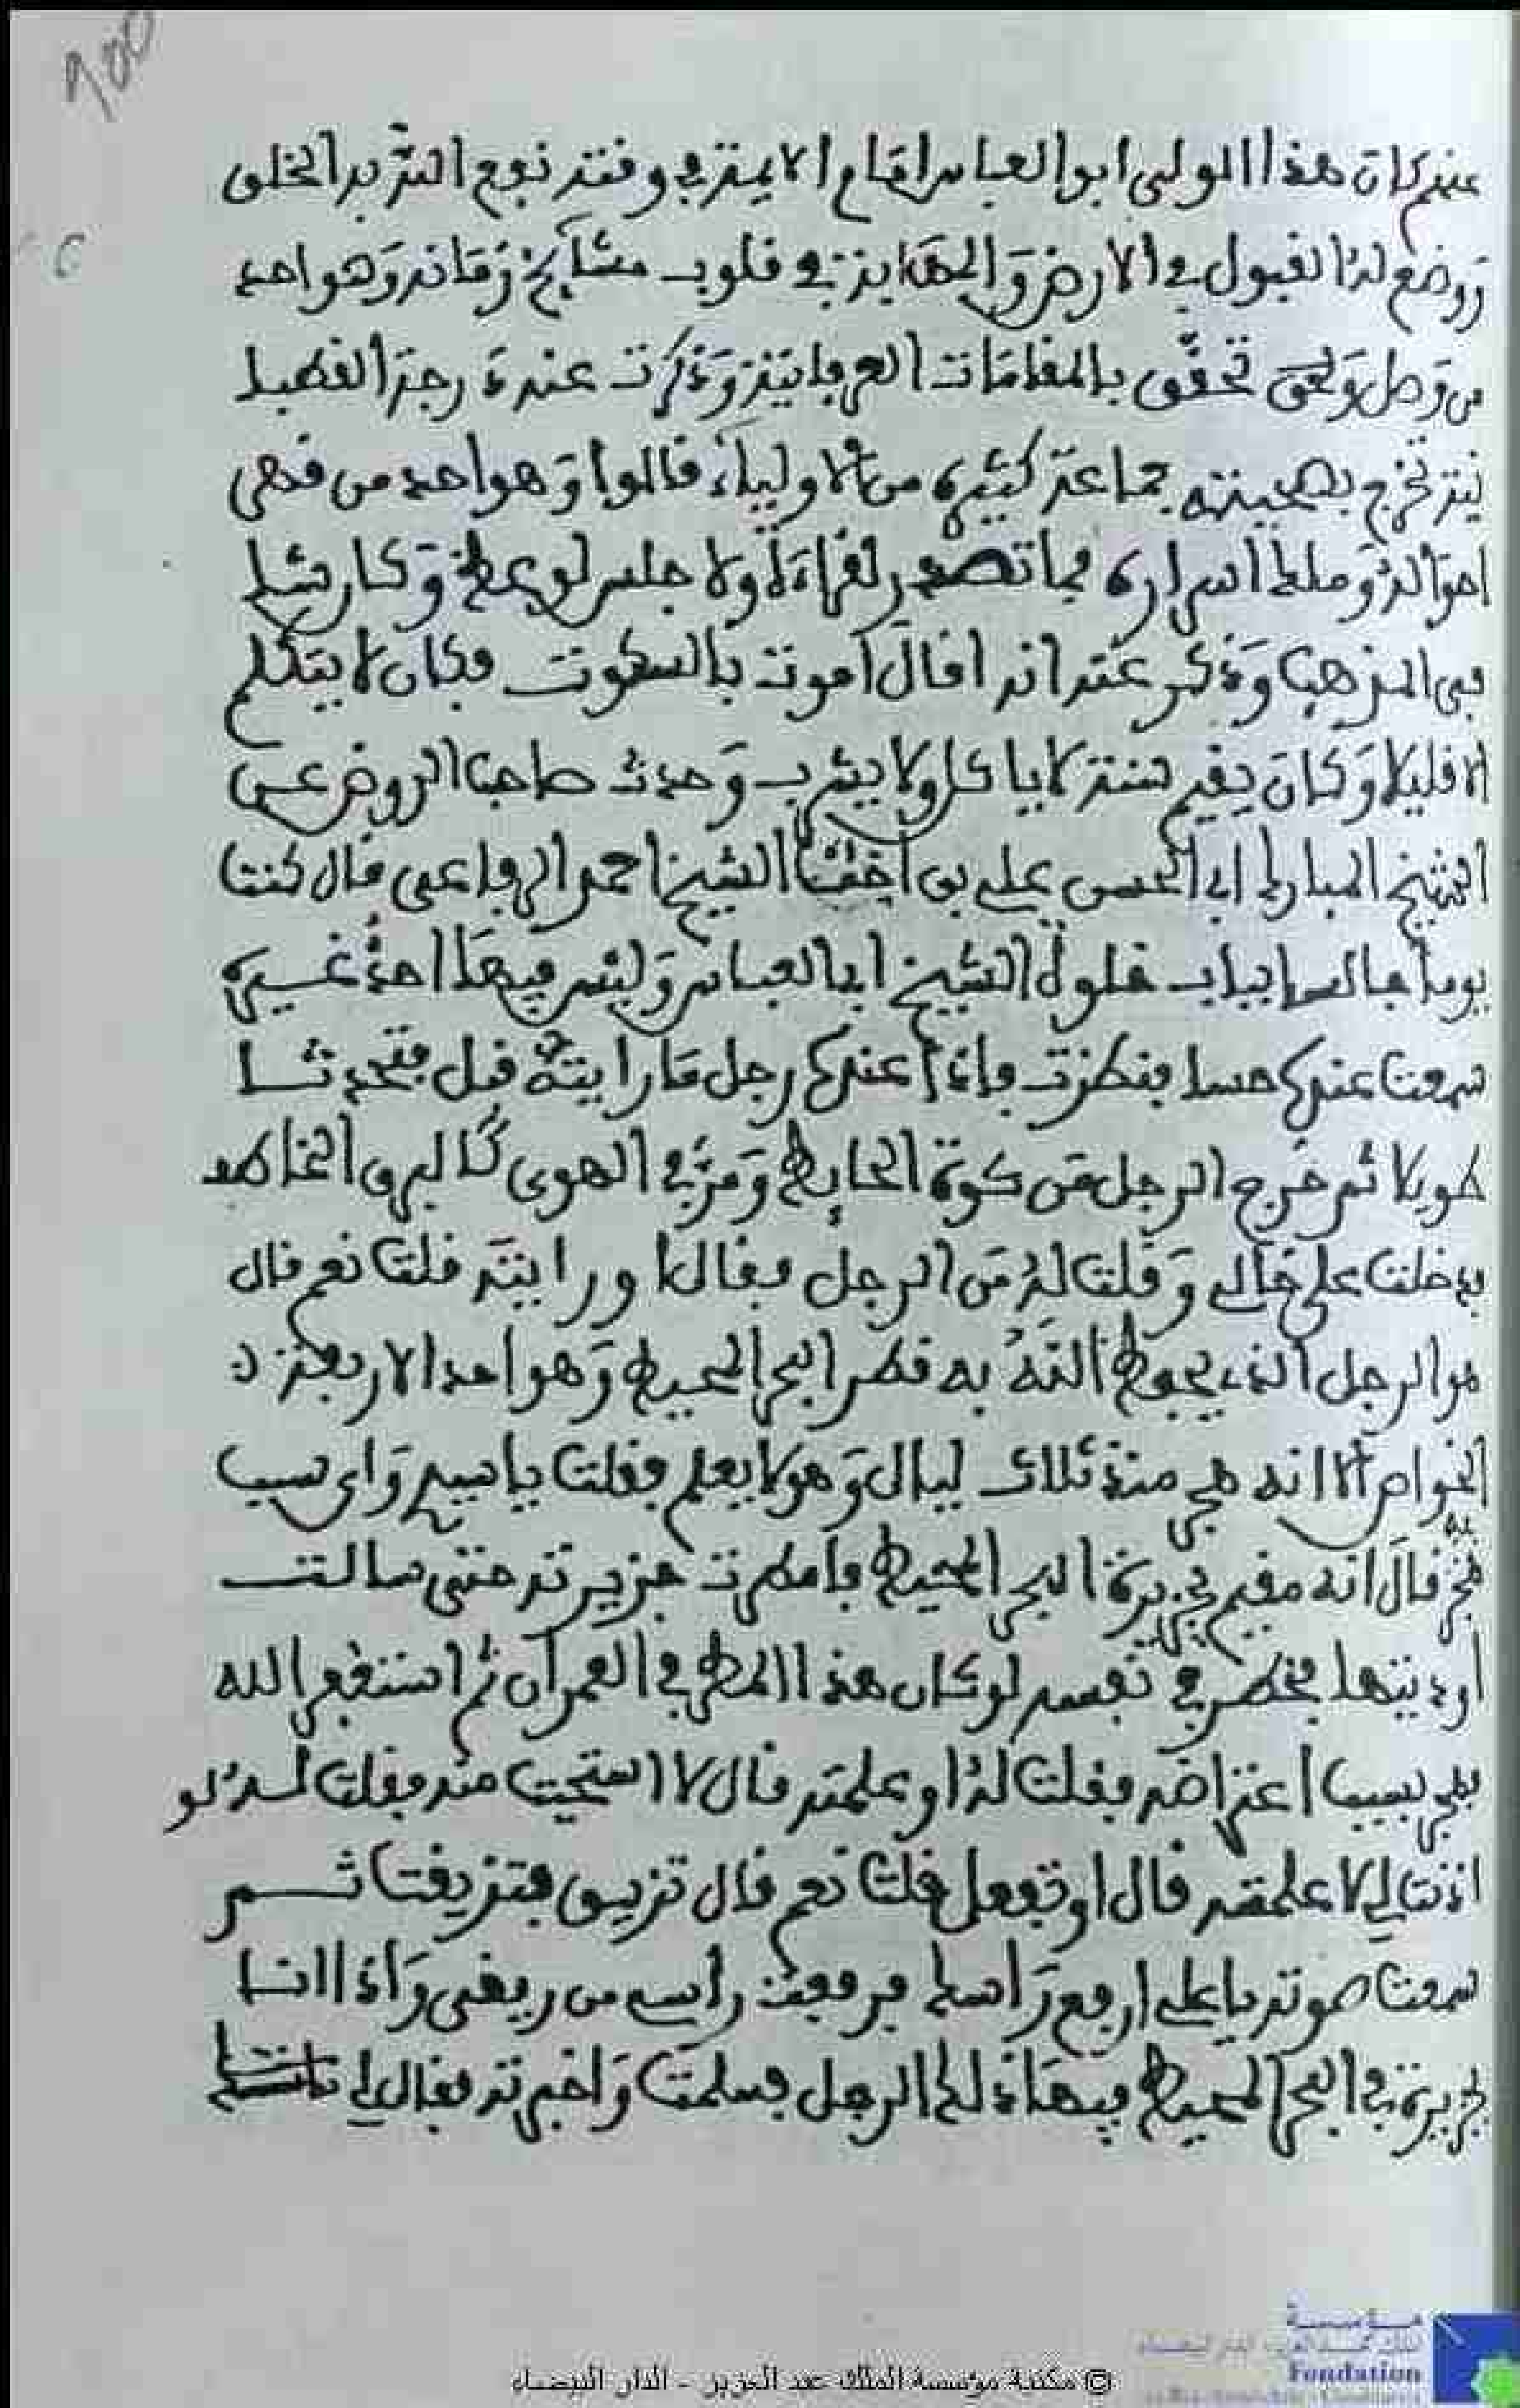 100
عنه كان هذا الولي ابو العباس امام الايمة في وقته نبع الله به الخلق
ووضع له القبول في الارض والمهابة في قلوب مشايخ زمانه وهو احد
من وصل ولحق تحقق بالمقامات العرفانية وذكرت عنده رجة القطبا
نية تخرج بصحبته جماعة كثيرة من الاولياء قالوا وهو احد من قهى
احواله وملك اسراره فما تصدر لقراءة ولا جلس لوعظ وكان شا
فعي المذهب وذكر عنه انه قال امرت بالسكوت فكان لا يتكلم
الا قليلا وكان يقيم سنة لا ياكل ولا يشرب وحدث صاحب الروض عن
الشيخ المبارك ابي الحسن علي بن اخت الشيخ احمد الرفاعي قال كنت
يوما جالسا بباب خلوة الشيخ ابي العباس وليس فيها احد غيره
سمعت عنده حسا فنظرت فاذا عنده رجل ما رايته قبل فتحدثا
طويلا ثم خرج الرجل من كوة الحايط ومر في الهوى كالبرق الخاطف
فدخلت على خالي وقلت له من الرجل فقال او رايته قلت نعم قال
هو الرجل الذي يحفظ الله به قطر البحر المحيط وهو احد الاربعة
الخواص الا انه هجر منذ ثلاث ليال وهو لا يعلم فقلت يا سيدي واي سبب
به
هجر قال انه مقيم بجزيرة البحر المحيط فامطرت جزيرته حتى سالت
اوديتها فخطر في نفسه لو كان هذا المطر في العمران ثم استغفر الله
فهجر بسبب اعتراضه فقلت له او علمته قال لا استحيت منه فقلت له لو
اذنت لي لاعلمته قال او تفعل قلت نعم قال تزيق فتزيقت ثم
سمعت صوته يا علي ارفع راسك فرفعت راسي من ريقي واذا انا
بجزيرة في البحر المحيط فيها ذلك الرجل فسلمت واخبرته فقال لي
مؤسسة
Fondation
© مكتبة مؤسسة الملك عبد العزيز - الدار البيضاء